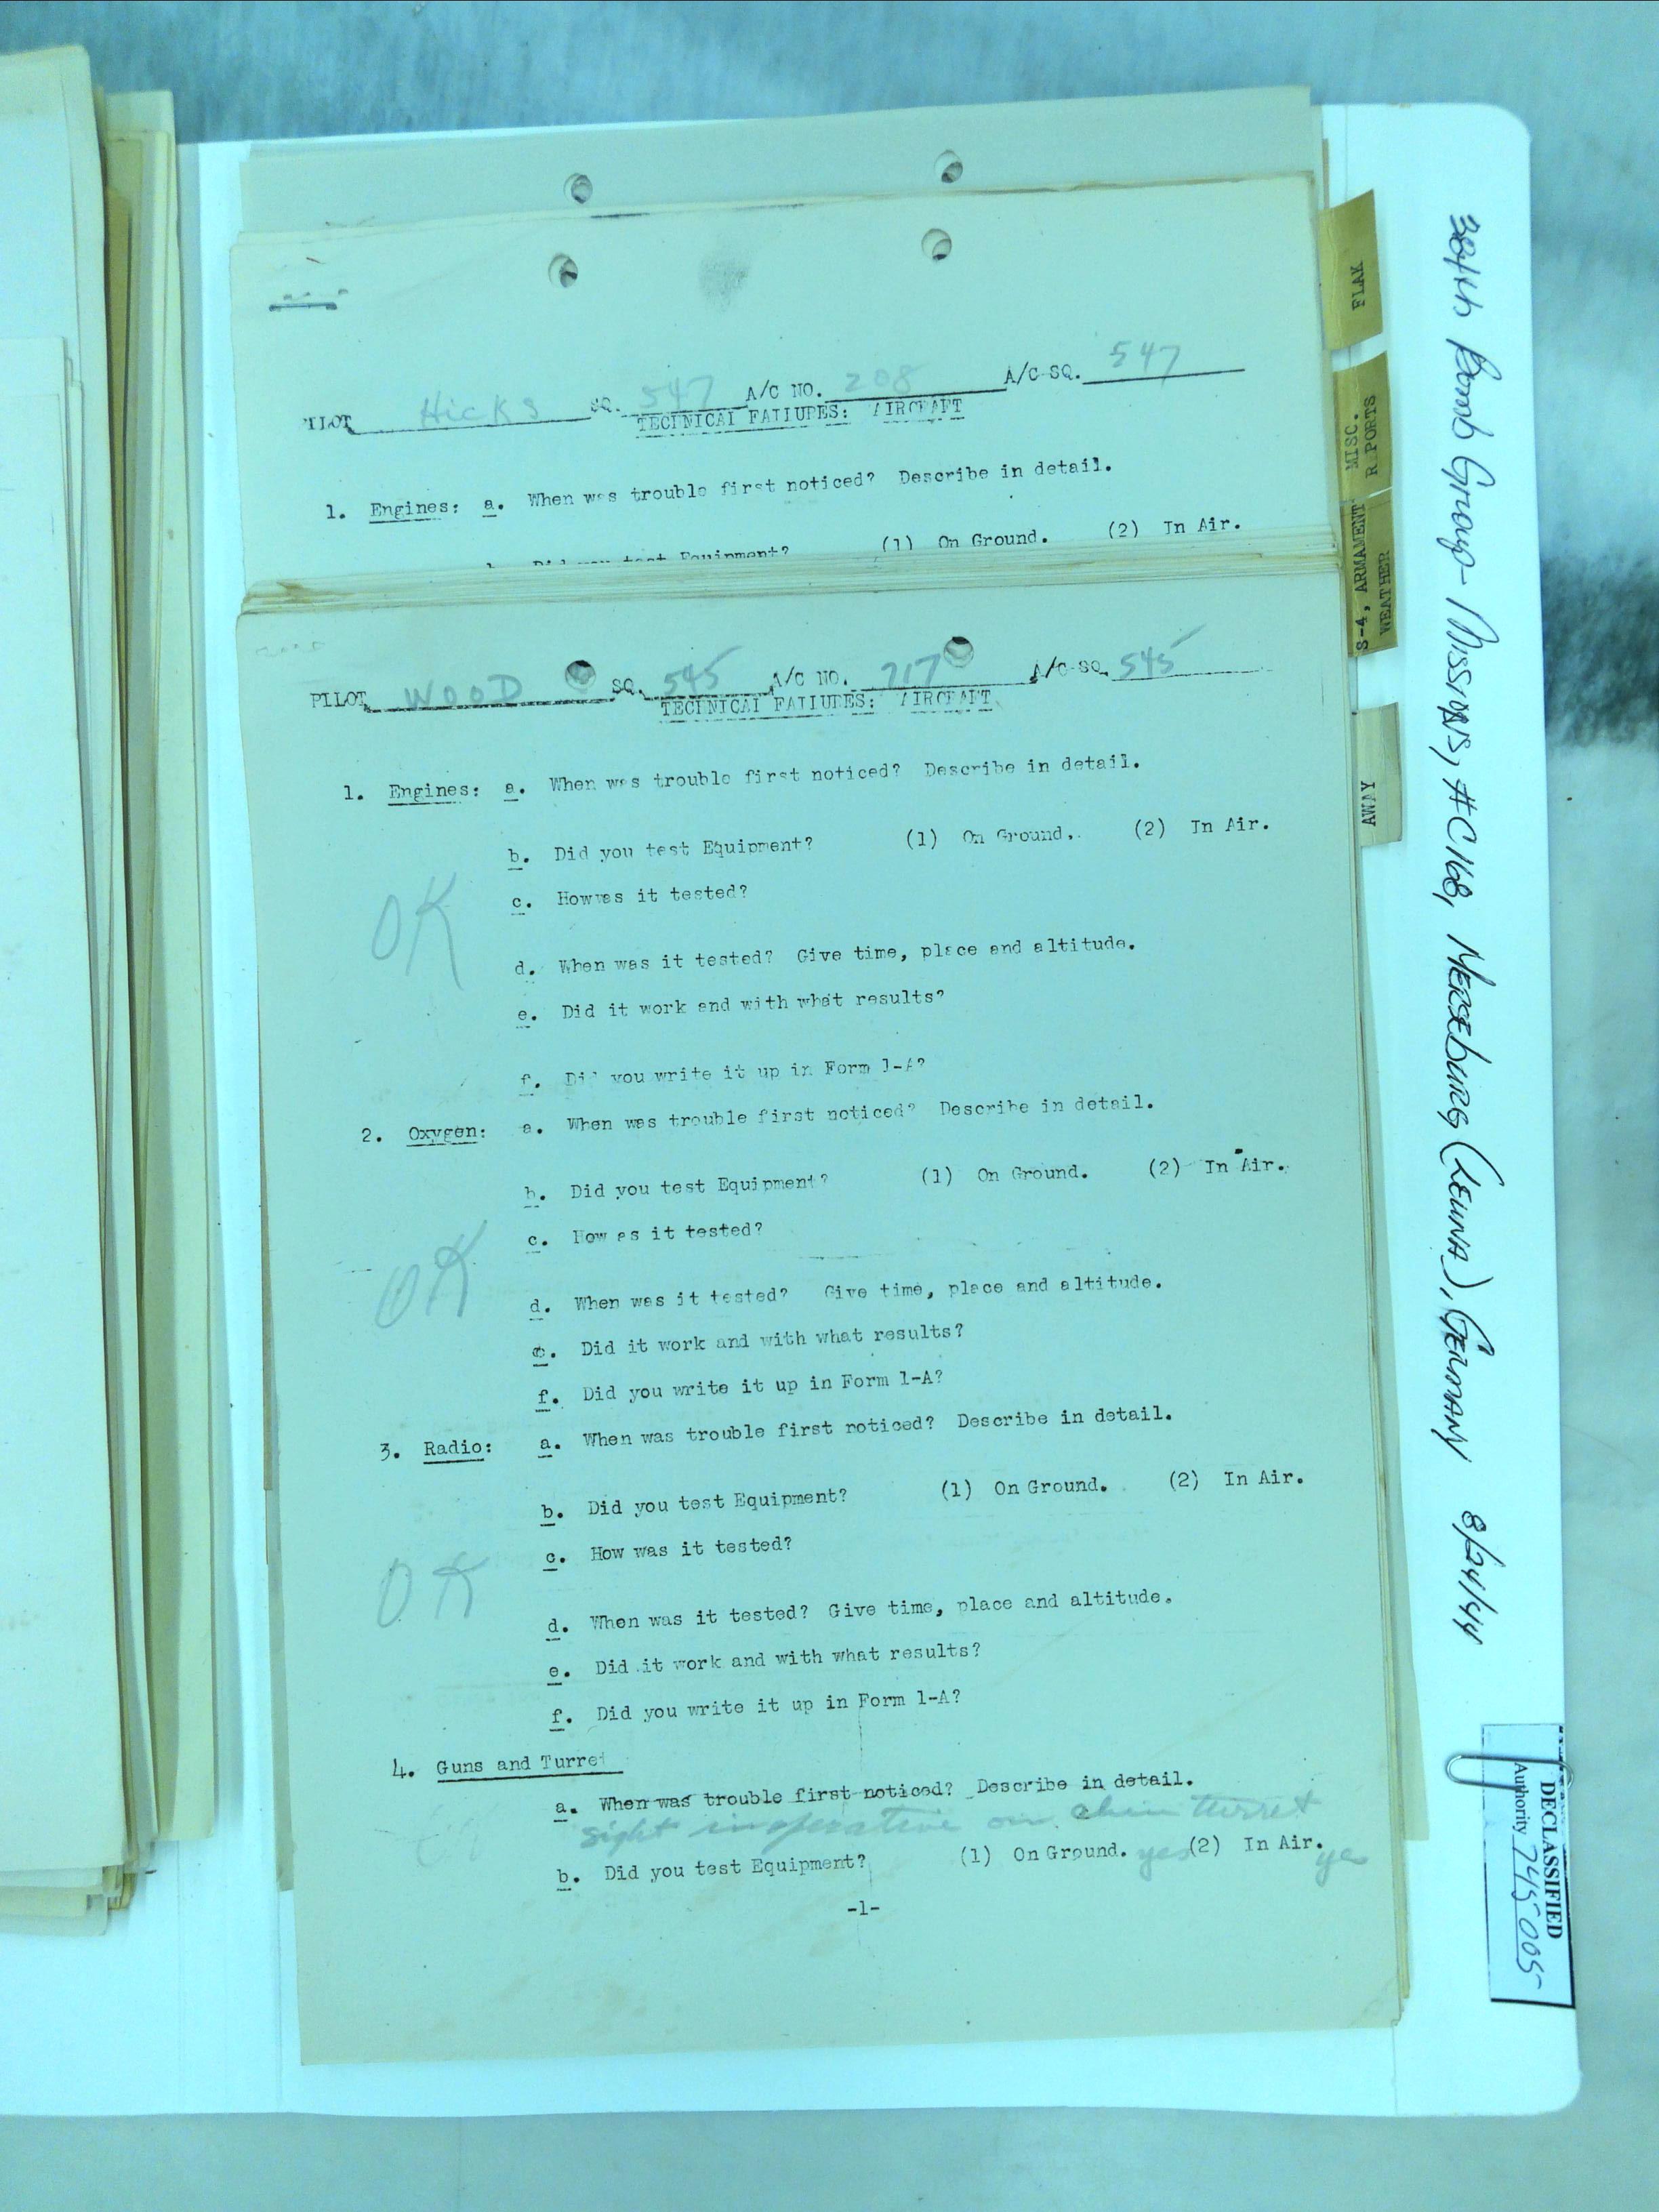 PILOT Hicks SQ. 547 A/C NO. 208 A/C SQ. 547
TECHNICAL FAILURES: AIRCRAFT
1. Engines: a. When was trouble first noticed? Describe in detail.
b. Did you test Equipment? (1) On Ground. (2) In Air.
PILOT WOOD SQ. 545 A/C NO. 717 A/C SQ. 545
TECHNICAL FAILURES: AIRCRAFT
1. Engines: a. When was trouble first noticed? Describe in detail.
b. Did you test Equipment? (1) On Ground. (2) In Air.
c. How was it tested?
OK
d. When was it tested? Give time, place and altitude.
e. Did it work and with what results?
f. Did you write it up in Form 1-A?
2. Oxygen: a. When was trouble first noticed? Describe in detail.
b. Did you test Equipment? (1) On Ground. (2) In Air.
c. How as it tested?
OK
d. When was it tested? Give time, place and altitude.
e. Did it work and with what results?
f. Did you write it up in Form 1-A?
3. Radio: a. When was trouble first noticed? Describe in detail.
b. Did you test Equipment? (1) On Ground. (2) In Air.
c. How was it tested?
OK
d. When was it tested? Give time, place and altitude.
e. Did it work and with what results?
f. Did you write it up in Form 1-A?
4. Guns and Turret
a. When was trouble first noticed? Describe in detail.
Sight inoperative on chin turret
b. Did you test Equipment? (1) On Ground. yes (2) In Air. yes
-1-
FLAK
MISC. REPORTS
S-4, ARMAMENT
WEATHER
AWAY
384th Bomb Group - Missions, #C168, Merseburg (Leuna), Germany 8/24/44
DECLASSIFIED
Authority 745005